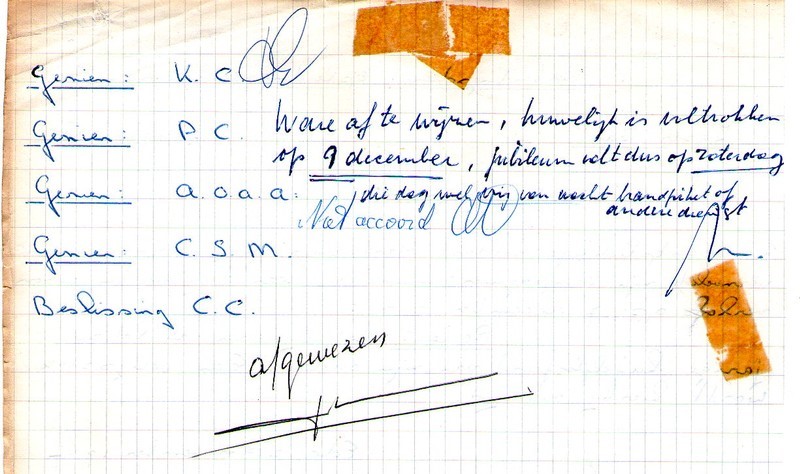 Gezien: K. C.
Gezien: P C. Ware af te wijzen, huwelijk is voltrokken
op 9 december, jubileum valt dus op zaterdag
Gezien: a. o. a. a: die dag wel vrij van wacht brandpiket of
andere dienst
Niet accoord
Gezien C. S. M.
Beslissing C. C.
afgewezen